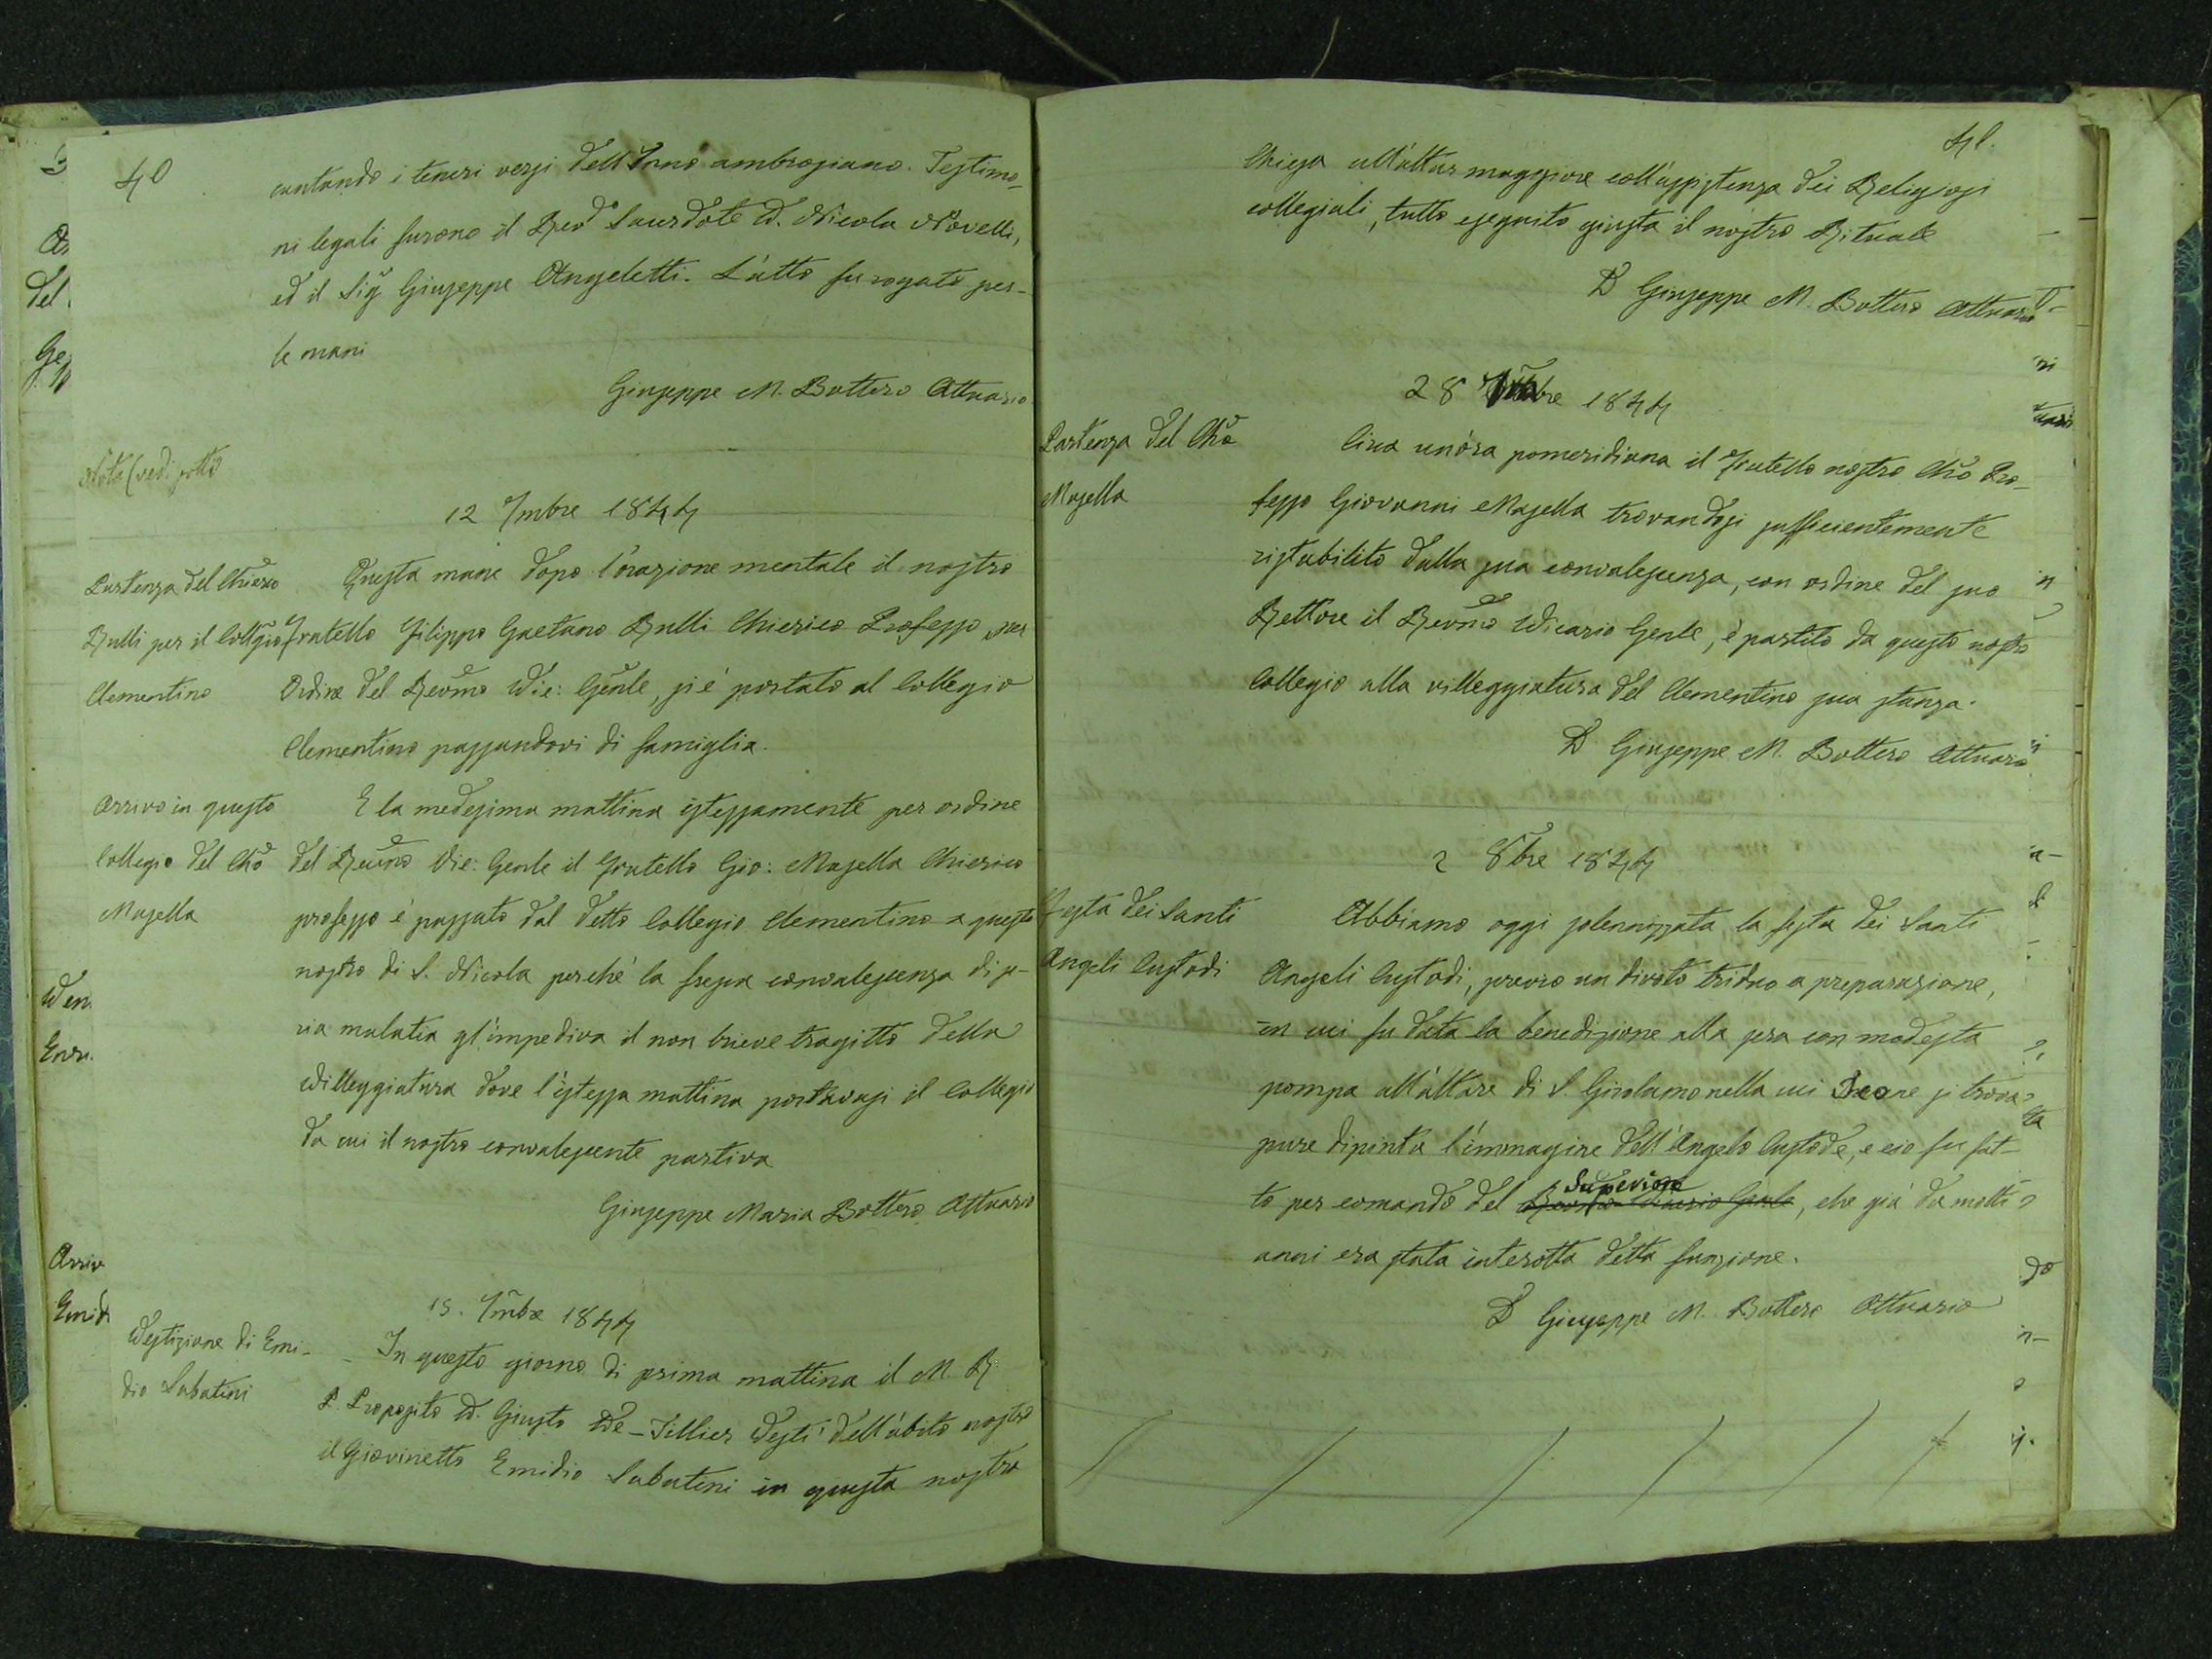 40
cantando i teneri versi dell'Inno ambrogiano. Testimo-
ni legali furono il Revdo Sacerdote D. Nicola Novelli,
ed il Sigr Giuseppe Angeletti. L'atto fu rogato per
le mani
Giuseppe M. Bottero Attuario
Nota (vedi sotto
12 7mbre 1844
Partenza del Chierco
Rulli per il Collgio
Clementino
Questa mane dopo l'orazione mentale il nostro
fratello Filippo Gaetano Rulli Chierico Professo per
Ordine del Revmo Vic: Genle, si è portato al Collegio
Clementino passandovi di famiglia.
Arrivo in questo
Collegio del Chco
Masella
E la medesima mattina istessamente per ordine
del Revmo Vic: Genle il Fratello Gio: Masella Chierico
professo è passato dal detto Collegio Clementino a questo
nostro di S. Nicola perchè la fresca convalescenza di se-
ria malatia gl'impediva il non brieve tragitto della
Villeggiatura dove l'istessa mattina portavasi il Collegio
da cui il nostro convalescente partiva
Giuseppe Maria Bottero Attuario
15. 7mbre 1844
Vestizione di Emi-
dio Sabatini
In questo giorno di prima mattina il M. R.
P. Proposito D. Giusto De-Tillier vestì dell'abito nostro
il Giovinetto Emidio Sabatini in questa nostra
41.
Chiesa all'altar maggiore coll'assistenza dei Religiosi
collegiali, tutto eseguito giusta il nostro Rituale
D Giuseppe M. Bottero Attuario
28 7mbre 1844
Partenza del Chco
Masella
Circa un'ora pomeridiana il Fratello nostro Chco Pro-
fesso Giovanni Masella trovandosi sufficientemente
ristabilito dalla sua convalescenza, con ordine del suo
Rettore il Revmo Vicario Genle, è partito da questo nostro
Collegio alla villeggiatura del Clementino sua stanza.
D Giuseppe M. Bottero Attuario
2 8bre 1844
Festa dei Santi
Angeli Custodi
Abbiamo oggi solennizzata la festa dei Santi
Angeli Custodi, previo un divoto triduo a preparazione,
in cui fu data la benedizione alla sera con modesta
pompa all'altare di S. Girolamo nella cui Icone si trova
pure dipinta l'immagine dell'Angelo Custode, e ciò fu fat-
to per comando del Revmo Vicario Genle Superiore, che già da molti
anni era stata interotta detta funzione.
D Giuseppe M. Bottero Attuario